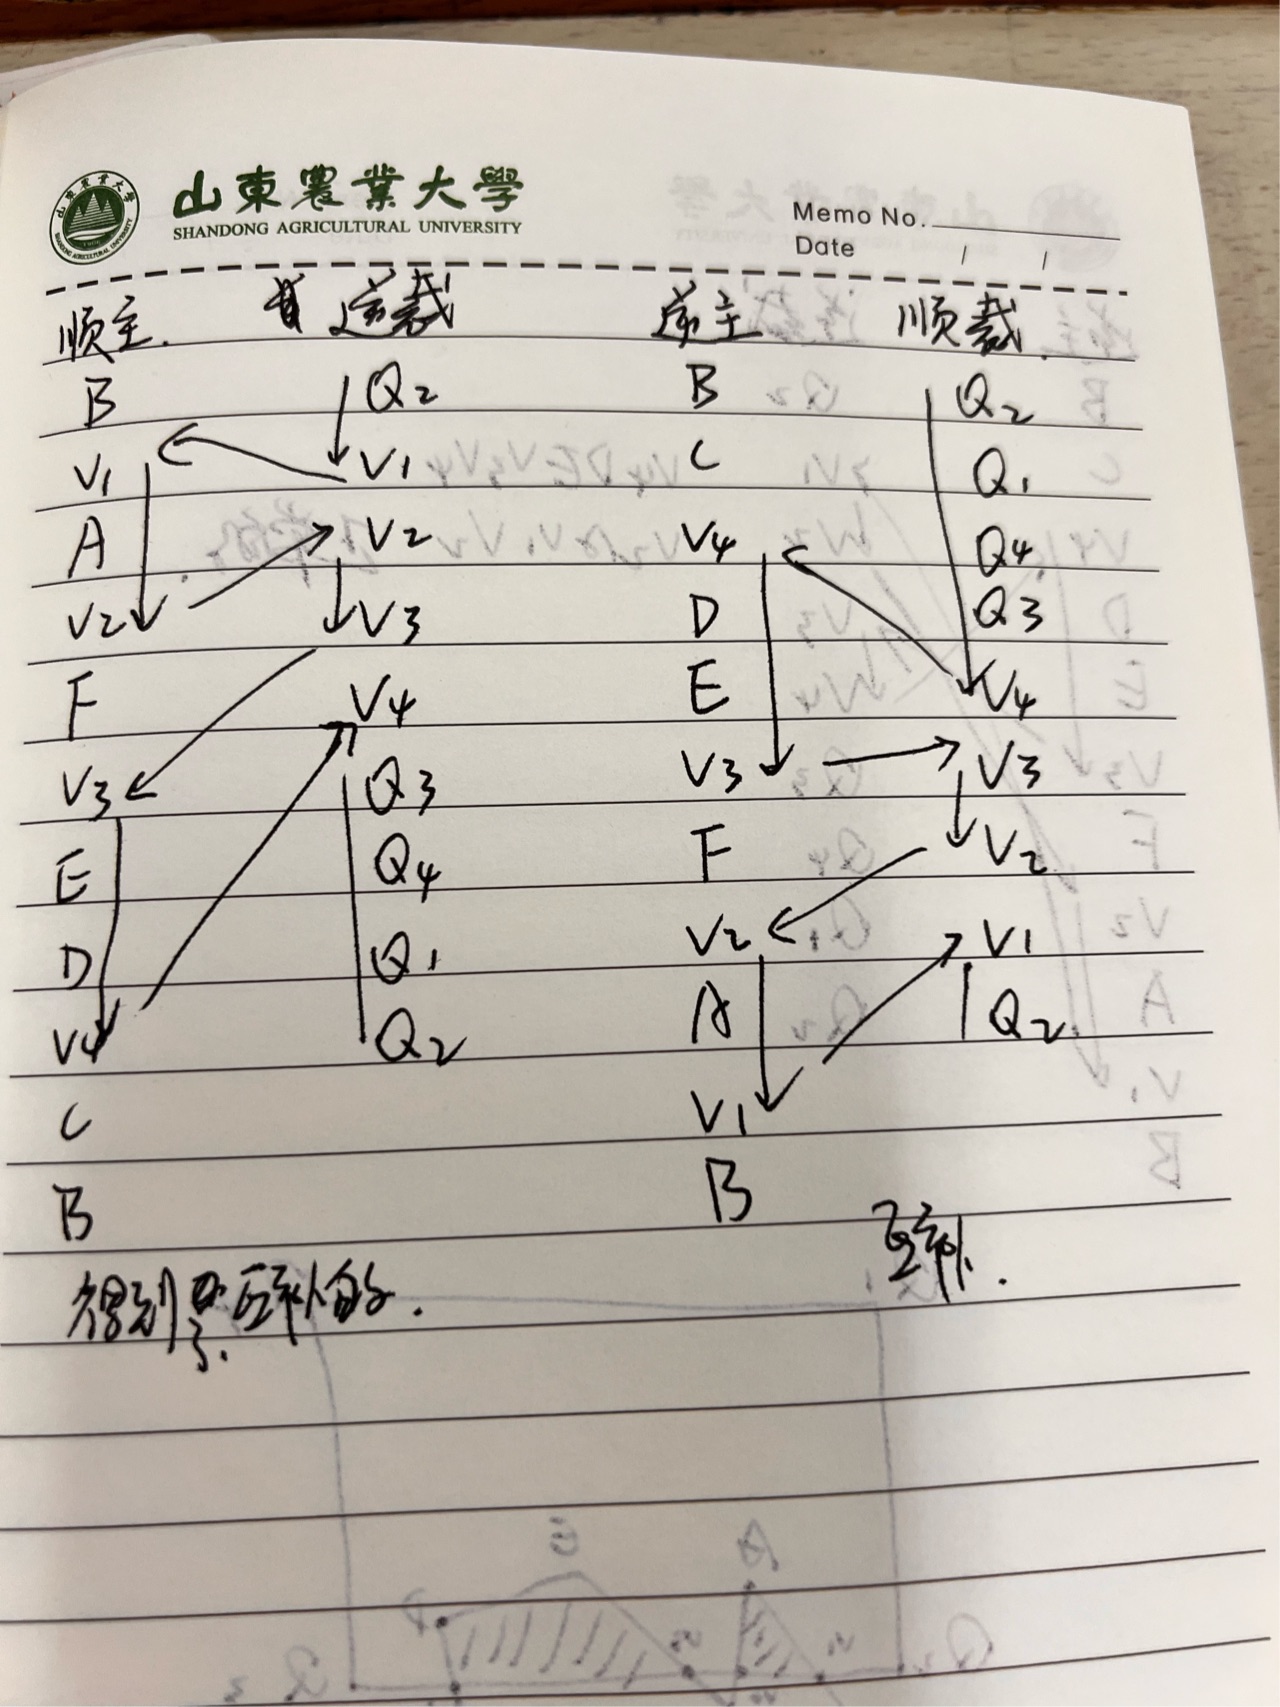 山東農業大學
SHANDONG AGRICULTURAL UNIVERSITY
Memo No.
Date / /
顺主. 逆裁 逆主 顺裁.
B Q2 B Q2
V1 V1 C Q1
A V2 V4 Q4
V2 V3 D Q3
F V4 E V4
V3 Q3 V3 V3
E Q4 F V2
D Q1 V2 V1
V4 Q2 A Q2
C V1
B B
互补.
得到 互补的.